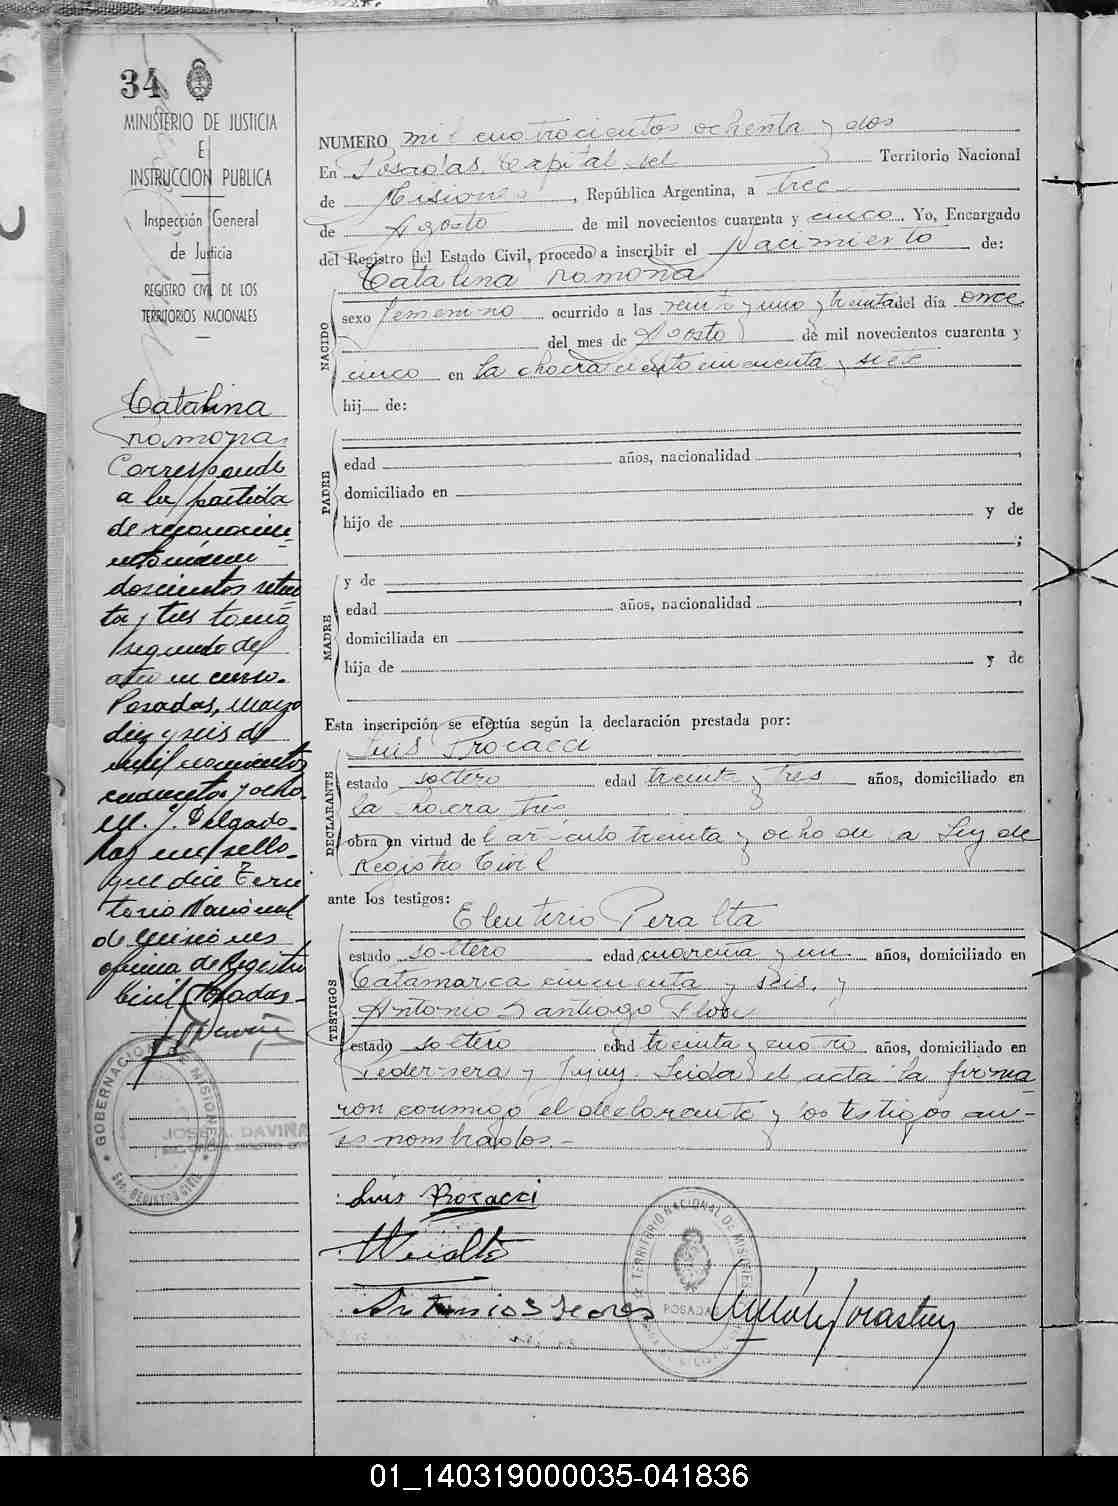 34
MINISTERIO DE JUSTICIA
E
INSTRUCCION PUBLICA
Inspección General
de Justicia
REGISTRO CIVIL DE LOS
TERRITORIOS NACIONALES
Catalina
ramona
Corresponde
a la partida
de reconocimi-
ento número
doscientos seten
ta y tres tomo
segundo del
año en curso.
Posadas, Mayo
diez y seis de
mil novecientos
cuarenta y ocho.
M. J. Delgado.
Hay un sello.
que dice Terri
torio Nacional
de Misiones
oficina de Registro
Civil Posadas-
GOBERNACION DE MISIONES
REGISTRO CIVIL
JOSE A. DAVIÑA
NUMERO mil cuatrocientos ochenta y dos
En Posadas, Capital del Territorio Nacional
de Misiones, República Argentina, a trece
de Agosto de mil novecientos cuarenta y cinco. Yo, Encargado
del Registro del Estado Civil, procedo a inscribir el Nacimiento de:
Catalina ramona
NACIDO
sexo femenino ocurrido a las veinte y uno y treinta del día once
del mes de Agosto de mil novecientos cuarenta y
cinco en la chacra ciento cincuenta y siete
hij..... de:
PADRE
edad años, nacionalidad
domiciliado en
hijo de y de
;
MADRE
y de
edad años, nacionalidad
domiciliada en
hija de y de
Esta inscripción se efectúa según la declaración prestada por:
Luis Procacci
DECLARANTE
estado soltero edad treinta y tres años, domiciliado en
la chacra tres
obra en virtud de l artículo treinta y ocho de la Ley de
Registro Civil
ante los testigos:
Eleuterio Peralta
TESTIGOS
estado soltero edad cuarenta y un años, domiciliado en
Catamarca cincuenta y seis, y
Antonio Santiago Flores
estado soltero edad treinta y cuatro años, domiciliado en
Pedernera y Jujuy. Leida el acta la firma-
ron conmigo el declarante y los testigos an-
tes nombrados.-
Luis Procacci
EPeralta
Antonio S Flores
TERRITORIO NACIONAL DE MISIONES
POSADAS
01_140319000035-041836